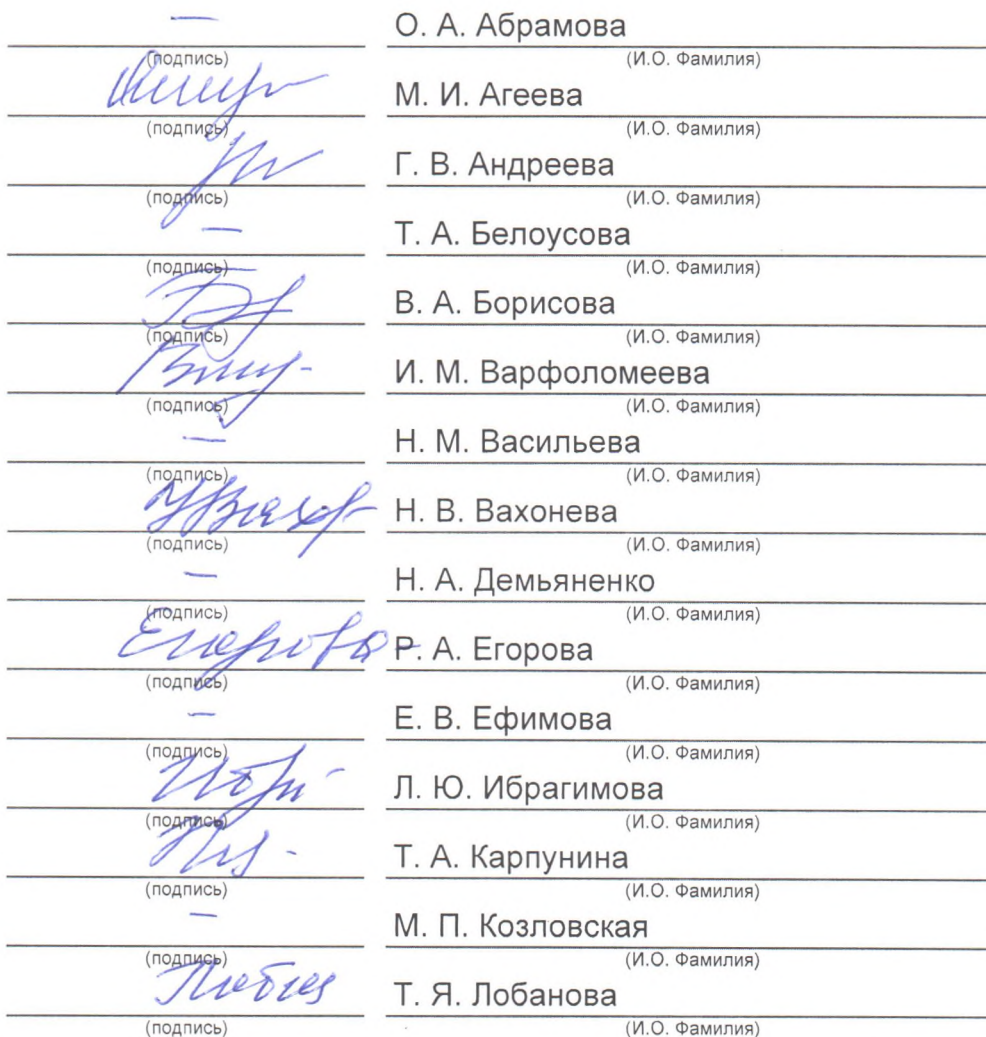 — О. А. Абрамова
(подпись) (И.О. Фамилия)
М. И. Агеева
(подпись) (И.О. Фамилия)
Г. В. Андреева
(подпись) (И.О. Фамилия)
— Т. А. Белоусова
(подпись) (И.О. Фамилия)
В. А. Борисова
(подпись) (И.О. Фамилия)
И. М. Варфоломеева
(подпись) (И.О. Фамилия)
— Н. М. Васильева
(подпись) (И.О. Фамилия)
Н. В. Вахонева
(подпись) (И.О. Фамилия)
— Н. А. Демьяненко
(подпись) (И.О. Фамилия)
Егорова Р. А. Егорова
(подпись) (И.О. Фамилия)
— Е. В. Ефимова
(подпись) (И.О. Фамилия)
Л. Ю. Ибрагимова
(подпись) (И.О. Фамилия)
Т. А. Карпунина
(подпись) (И.О. Фамилия)
— М. П. Козловская
(подпись) (И.О. Фамилия)
Т. Я. Лобанова
(подпись) (И.О. Фамилия)